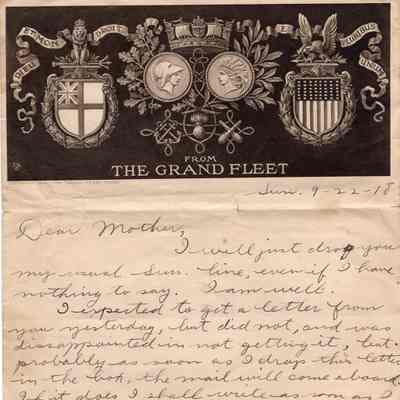 DIEU ET MON DROIT
E PLURIBUS UNUM
FROM
THE GRAND FLEET
Sun. 9-22-18
Dear Mother,
I will just drop you
my usual Sun. line, even if I have
nothing to say. I am well.
I expected to get a letter from
you yesterday, but did not, and was
disappointed in not getting it, but
probably as soon as I drop this letter
in the box, the mail will come aboard.
If it does I shall write as soon as I